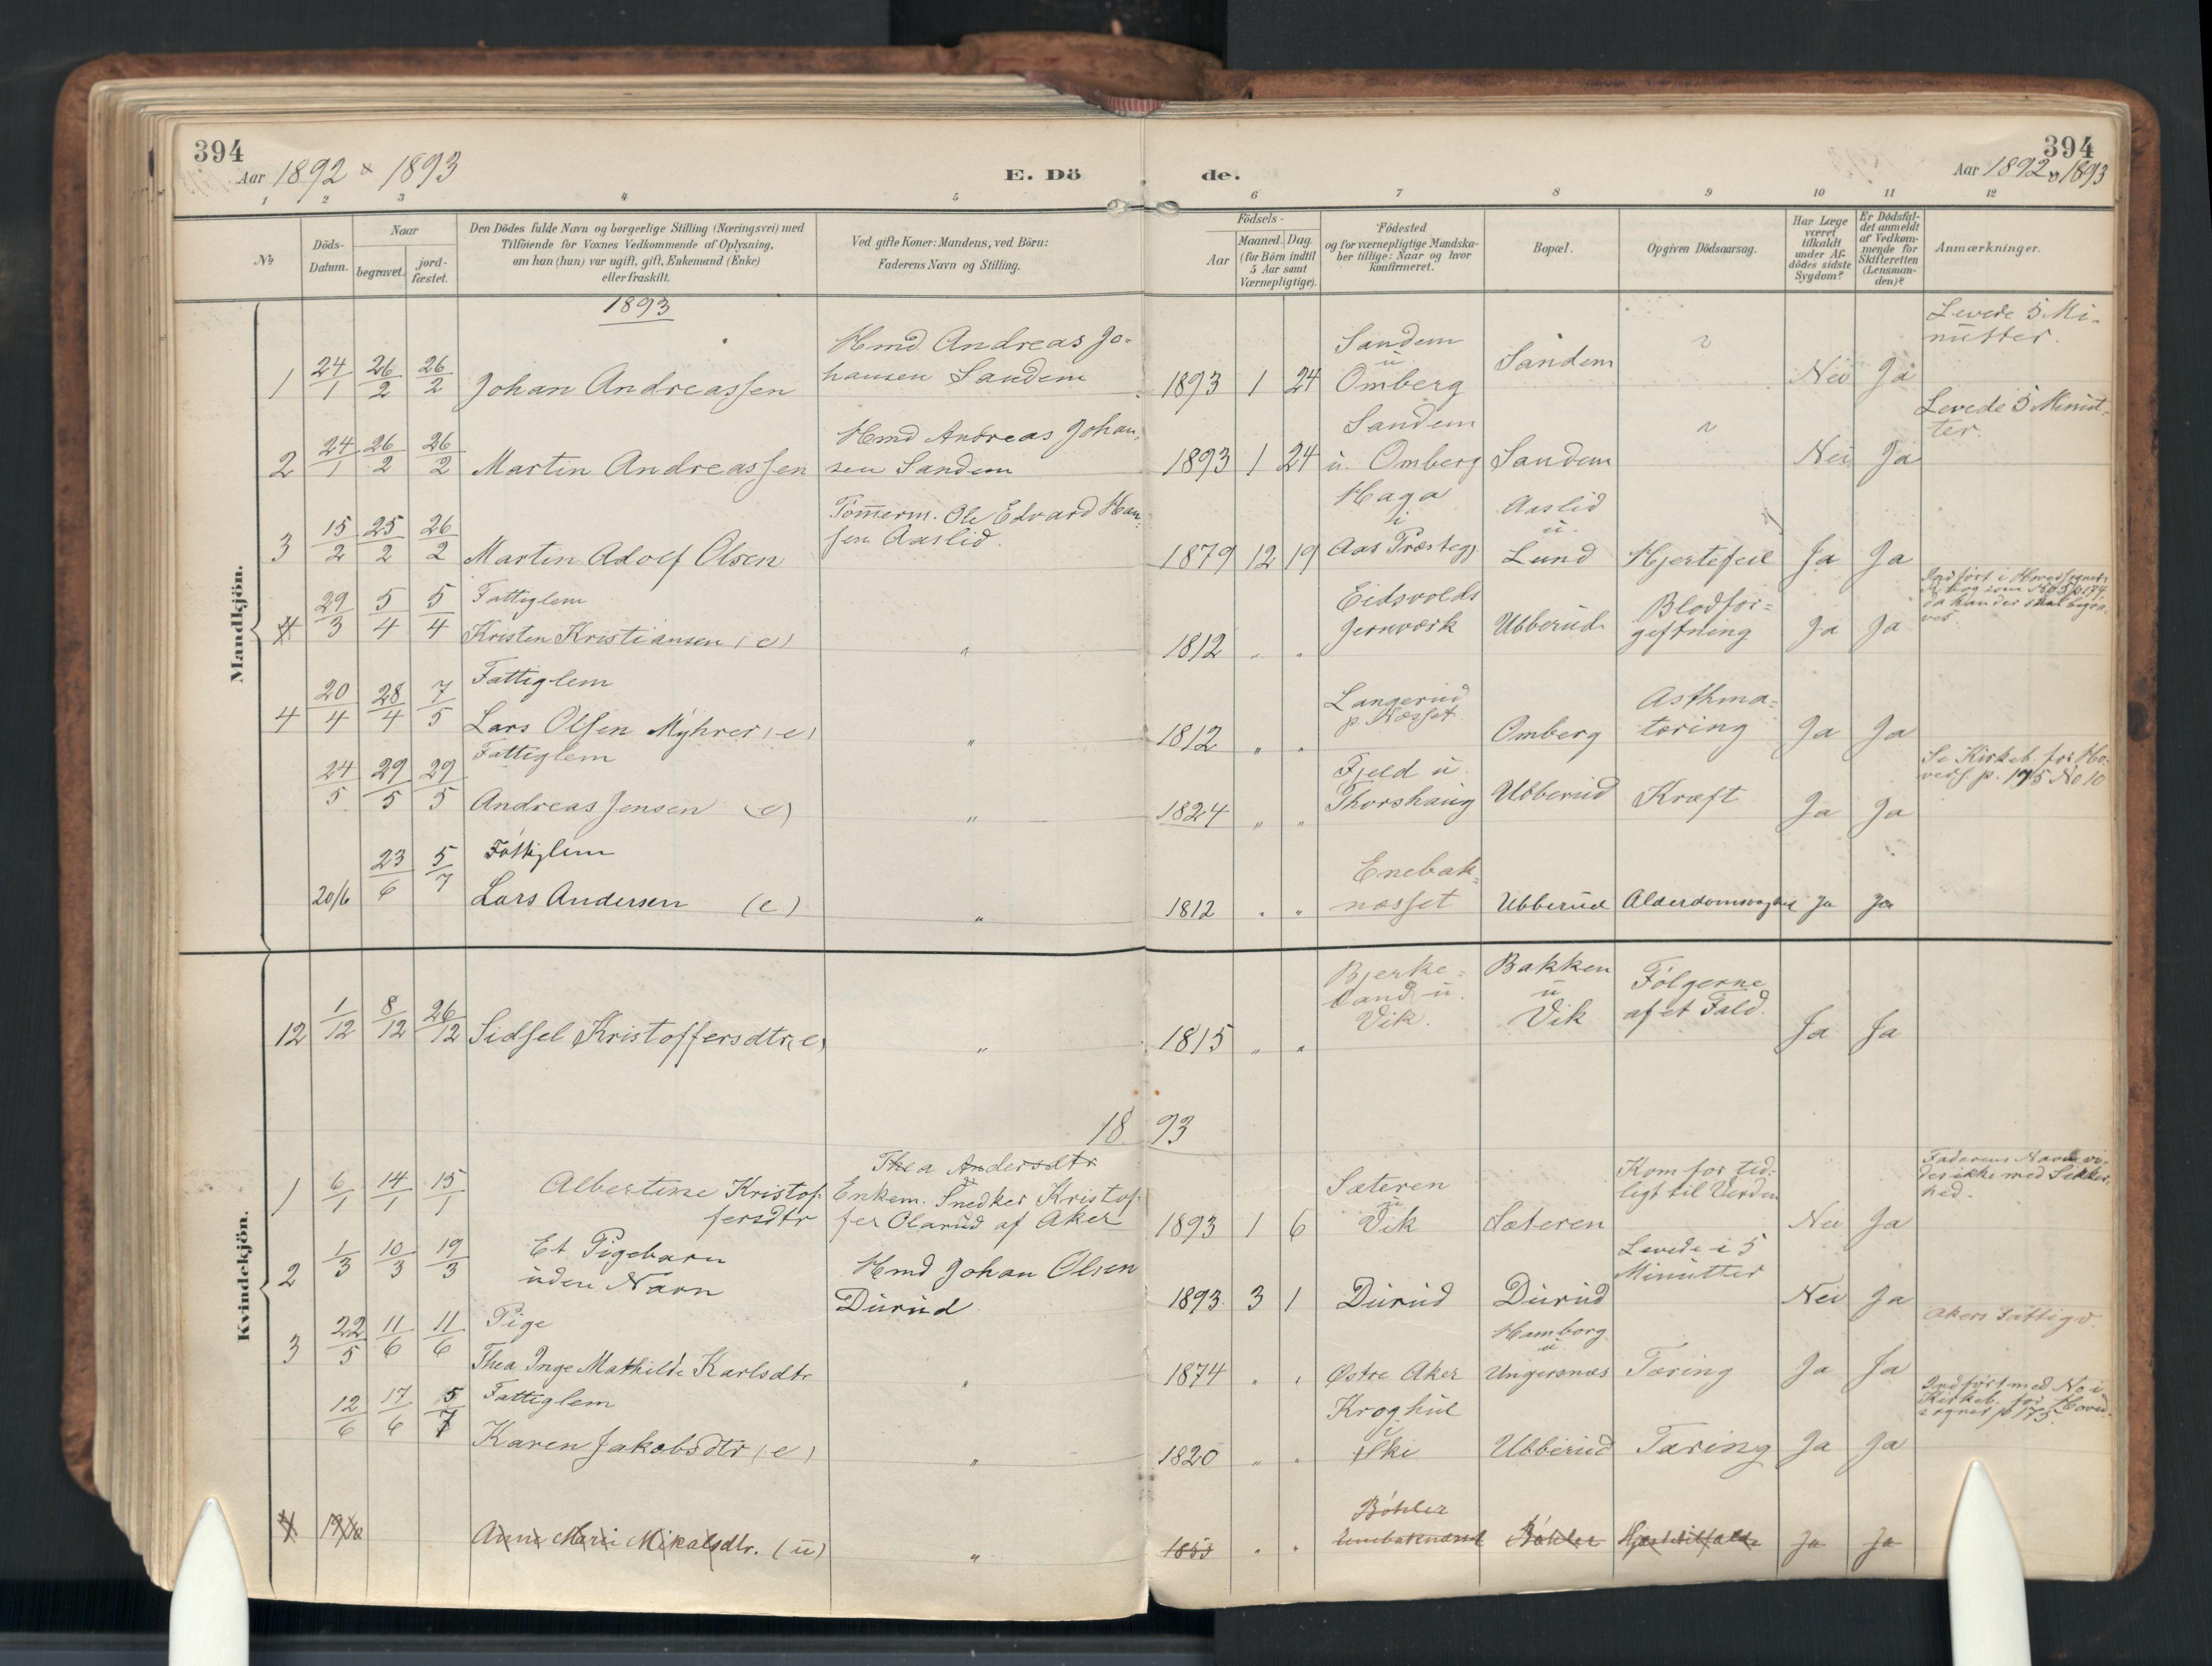 394
Aar 1892 & 1893
E. Dö
de.
394
Aar 1892 & 1893
1 2 3 4 5 6 7 8 9 10 11 12
No
Döds-Datum.
Naar
begravet.
jord-fæstet.
Den Dödes fulde Navn og borgerlige Stilling (Næringsvei) med
Tilföiende for Voxnes Vedkommende af Oplysning,
om han (hun) var ugift, gift, Enkemand (Enke)
eller fraskilt.
Ved gifte Koner: Mandens, ved Börn:
Faderens Navn og Stilling.
Födsels-
Aar
Maaned. Dag.
(for Börn indtil
5 Aar samt
Værnepligtige).
Födested
og for værnepligtige Mandska-
ber tillige: Naar og hvor
konfirmeret.
Bopæl.
Opgiven Dödsaarsag.
Har Læge
været
tilkaldt
under Af-
dödes sidste
Sygdom?
Er Dödsfal-
det anmeldt
af Vedkom-
mende for
Skifteretten
(Lensman-
den)?
Anmærkninger.
Mandkjön.
1893
1 24/1 26/2 26/2 Johan Andreassen
Hmd. Andreas Jo-
hansen Sandem
1893 1 24
Sandem
u.
Omberg
Sandem
Nei Ja
Levede 5 Mi-
nutter.
2 24/1 26/2 26/2 Martin Andreassen
Hmd Andreas Johan-
sen Sandem
1893 1 24
Sandem
u. Omberg
Sandem
Nei Ja
Levede 5 Minut-
ter.
3 15/2 25/2 26/2 Martin Adolf Olsen
Tömmerm. Ole Edvard Han-
sen Aaslid.
1879 12 19
Haga
i
Aas Præstegj.
Aaslid
u.
Lund
Hjertefeil
Ja Ja
4 29/3 5/4 5/4 Fattiglem
Kristen Kristiansen (e)
"
1812 " "
Eidsvolds
Jernværk
Ubberud
Blodfor-
giftning
Ja Ja
Indført i Hovedsognets
da han der skal begra-
ves.
4 20/4 28/4 7/5 Fattiglem
Lars Olsen Myhrer (e)
"
1812 " "
Langerud
p. Næsset
Omberg
Asthma-
tæring
Ja Ja
24/5 29/5 29/5 Fattiglem
Andreas Jensen (e)
"
1824 " "
Fjeld u.
Thorshaug
Ubberud
Kræft
Ja Ja
Se Kirkeb. for Ho-
veds. p. 175 No 10
20/6 23/6 5/7 Fattiglem
Lars Andersen (e)
"
1812 " "
Enebak-
næsset
Ubberud
Alderdomssvaghed
Ja Ja
Kvindekjön.
12 1/12 8/12 26/12 Sidsel Kristoffersdtr (e)
"
1815 " "
Bjerke-
land u.
Vik.
Bakken
u
Vik
Følgerne
af et Fald.
Ja Ja
1893
1 6/1 14/1 15/1 Albertine Kristof-
fersdtr
Thea Andersdtr
Enkem. Snedker Kristof-
fer Olarud af Aker
1893 1 6
Sæteren
u
Vik
Sæteren
Kom for tid-
ligt til Verden
Nei Ja
Faderens Navn vi-
des ikke med Sikker-
hed.
2 1/3 10/3 19/3 Et Pigebarn
uden Navn
Hmd Johan Olsen
Durud
1893. 3 1
Durud
Durud
Levede i 5
Minutter
Nei Ja
3 22/5 11/6 11/6 Pige
Thea Inge Mathilde Karlsdtr
"
1874 " "
Østre Aker
Hamborg
u
Ungersnæs
Tæring
Ja Ja
Akers Fattigv.
12/6 17/6 5/7 Fattiglem
Karen Jakobsdtr (e)
"
1820 " "
Kroghul
i
Ski
Ubberud
Tæring
Ja Ja
Indført med No i
Kirkeb. for Hoved-
sognet p 175.
4 Anne Marie Mikalsdtr. (u)
"
1853 " "
Böhler
Enebaknæsset
Böhler
Ja Ja